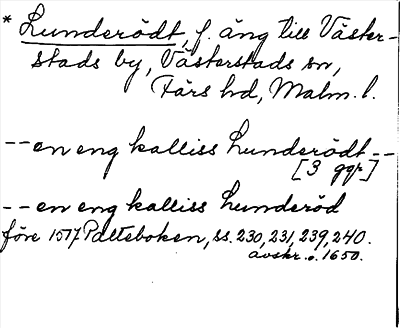 * Lunderödt, f. äng till Väster-
stads by, Västerstads sn,
Färs hd, Malm. l.
--en eng kalliss Lunderödt--
[3 ggr]
--en eng kalliss Lunderöd
före 1577 Palteboken, ss. 230, 231, 239, 240.
avskr. o. 1650.